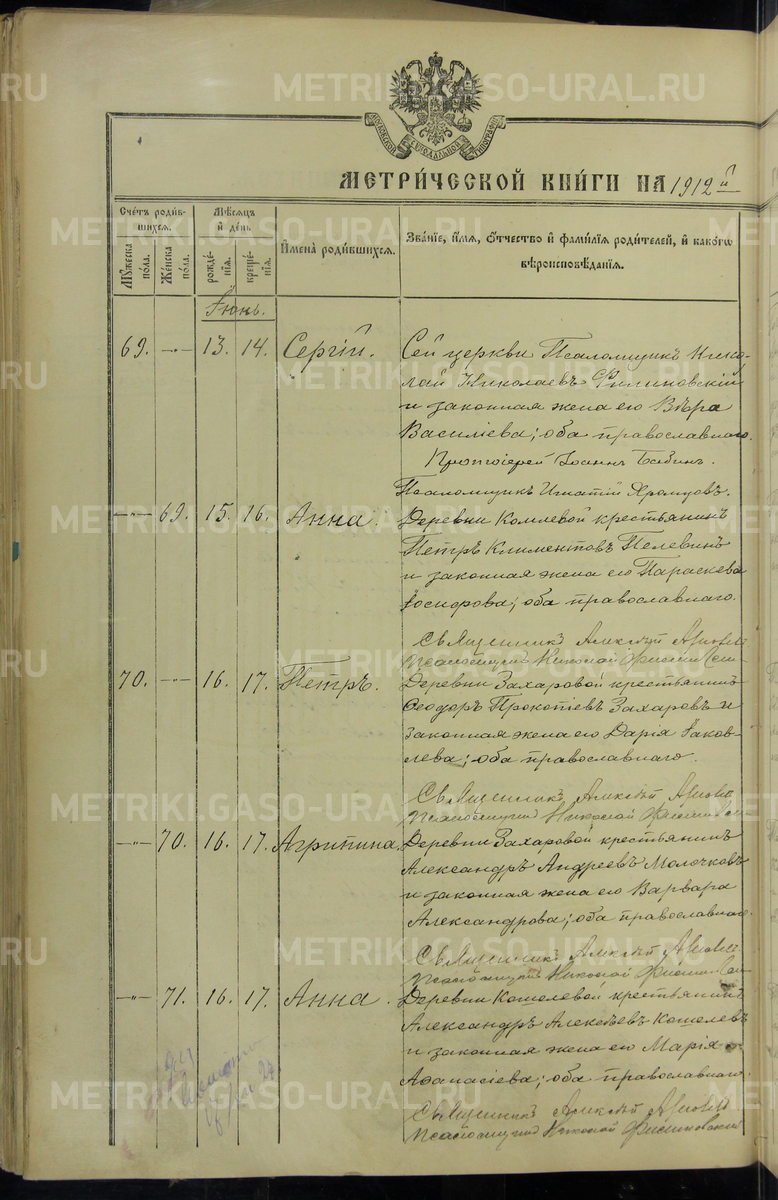 МОСКОВСКОЙ СѴНОДАЛЬНОЙ ТИПОГРАФІИ
МЕТРИ́ЧЕСКОЙ КНИ́ГИ НА 1912 й
Сче́тъ роди́в-
шихся.
Му́жеска по́ла.
Же́нска по́ла.
Мѣ́сяцъ и де́нь
рожде́-
нія.
креще́-
нія.
И҆мена̀ роди́вшихся.
Зва́ніе, и҆́мя, ѻ҆́тчество и҆ фами́лія роди́телей, и҆ како́гѡ
вѣроисповѣ́данія.
Іюнь.
69. —„— 13. 14. Сергій. Сей церкви Псаломщикъ Нико-
лай Николаевъ Филиновскій
и законная жена его Вѣра
Василіева; оба православнаго.
Протоіерей Іоаннъ Бабинъ.
Псаломщикъ Игнатій Храмцовъ.
—„— 69. 15. 16. Анна. Деревни Комлевой крестьянинъ
Петръ Климентовъ Пелевинъ
и законная жена его Параскева
Іосифова; оба православнаго.
Священникъ Алексѣй
Псаломщикъ Николай
70. —„— 16. 17. Петръ. Деревни Захаровой крестьянинъ
Ѳеодоръ Прокопіевъ Захаровъ и
законная жена его Дарія Іаков-
лева; оба православнаго.
Священникъ Алексѣй
Псаломщикъ Николай
—„— 70. 16. 17. Агрипина. Деревни Захаровой крестьянинъ
Александръ Андреевъ Молочковъ
и законная жена его Варвара
Александрова; оба православнаго.
Священникъ Алексѣй
Псаломщикъ Николай
—„— 71. 16. 17. Анна. Деревни Кошелевой крестьянинъ
Александръ Алексѣевъ Кошелевъ
и законная жена его Марія
Аѳанасіева; оба православнаго.
Священникъ Алексѣй
Псаломщикъ Николай Филиновскій
METRIKI.GASO-URAL.RU